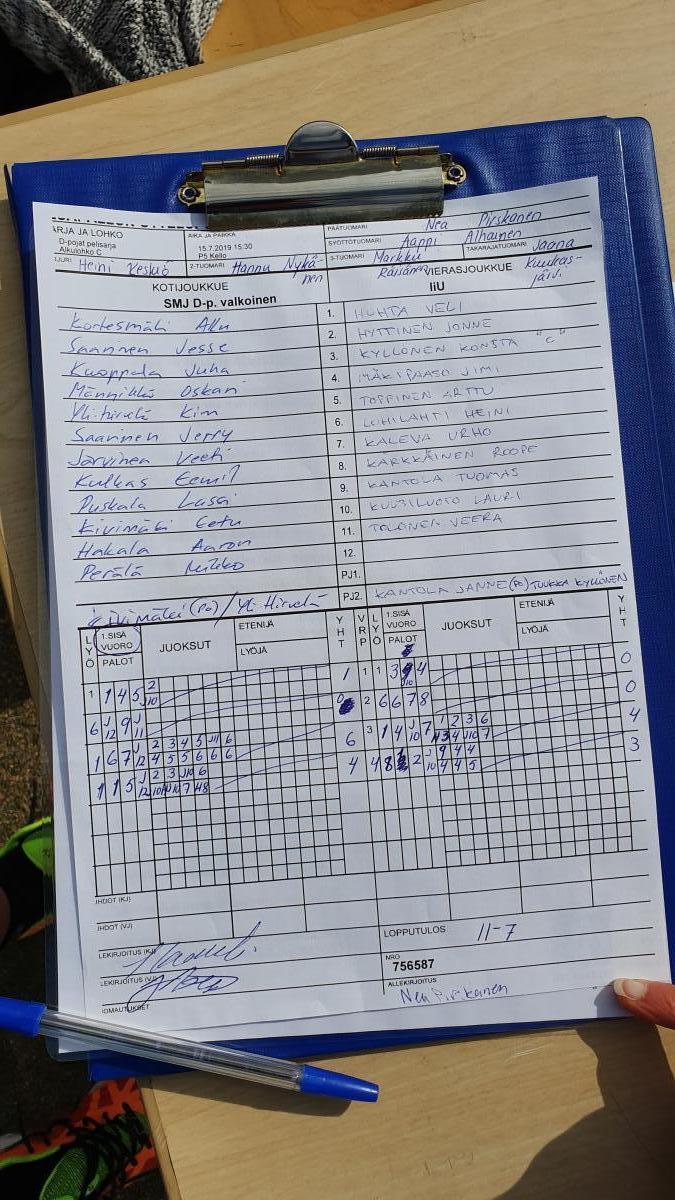 ARJA JA LOHKO
D-pojat pelisarja
Alkulohko C
AIKA JA PAIKKA
15.7.2019 15:30
P5 Kello
PÄÄTUOMARI Nea Pirskanen
SYÖTTÖTUOMARI Aappi Alhainen
2-TUOMARI Hannu Nykänen
3-TUOMARI Markku Räisänen
TAKARAJATUOMARI Jaana Kuukasjärvi
Heini Keskiö
KOTIJOUKKUE
SMJ D-p. valkoinen
VIERASJOUKKUE
IiU
Kortesmäki Allu 1. HUHTA VELI
Saarinen Jesse 2. HYTTINEN JONNE
Kuoppala Juha 3. KYLLÖNEN KONSTA "C"
Männikkö Oskari 4. MÄKIPAASO JIMI
Yli-Hirvelä Kim 5. TOPPINEN ARTTU
Saarinen Jerry 6. LOHILAHTI HEINI
Järvinen Veeti 7. KALEVA URHO
Kulkas Eemil 8. KARKKÄINEN ROOPE
Puskala Lassi 9. KANTOLA TUOMAS
Kivimäki Eetu 10. KUUSILUOTO LAURI
Hakala Aaron 11. TOLONEN VEERA
Perälä Mikko 12.
PJ1.
Kivimäki (Po) / Yli-Hirvelä PJ2. KANTOLA JANNE (Po) TUUKKA KYLLÖNEN
LYÖ 1.SISÄ VUORO PALOT JUOKSUT ETENIJÄ LYÖJÄ YHT VRP LYÖ 1.SISÄ VUORO PALOT JUOKSUT ETENIJÄ LYÖJÄ YHT
1 1 4 5 2 J10 1 1 1 3 4 0
6 J12 9 J11 0 2 6 6 7 8 0
1 6 7 J12 2 3 4 5 J11 6 6 3 1 4 J10 7 1 2 3 6 4
1 1 5 J12 2 3 J10 6 4 4 8 2 J10 9 4 4 3
LOPPUTULOS 11-7
NRO
756587
LEKIRJOITUS (KJ)
LEKIRJOITUS (VJ)
ALLEKIRJOITUS
Nea Pirskanen